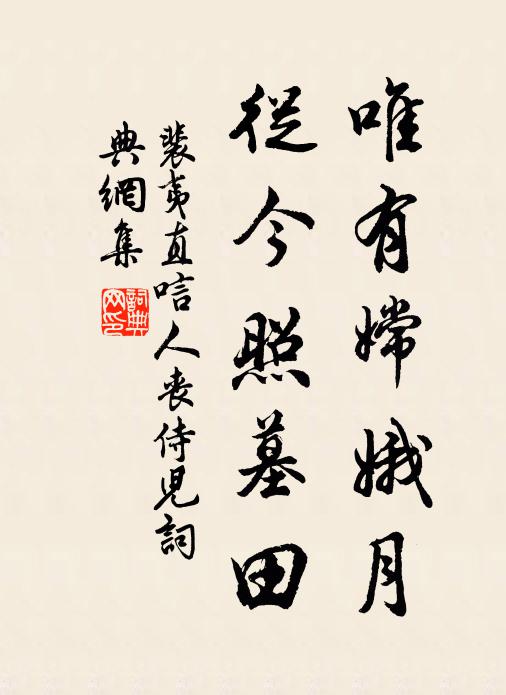 唯有嫦娥月
從今照墓田
裴夷直唁人喪侍児詞
典網集
詞典網印